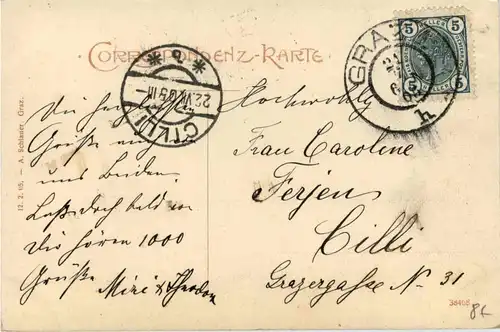 CORRESPONDENZ-KARTE
5 HELLER 5
5 5
GRAZ
h
CILLI
22.VII.05
Die herzlichsten
Grüße von
uns beiden.
Laß doch bald von
Dir hören 1000
Grüße Mizi & Theodor
Hochwohlg
Frau Caroline
Ferjen
Cilli
Grazergasse N. 31
12. 2. 05. — A. Schlauer, Graz.
38408